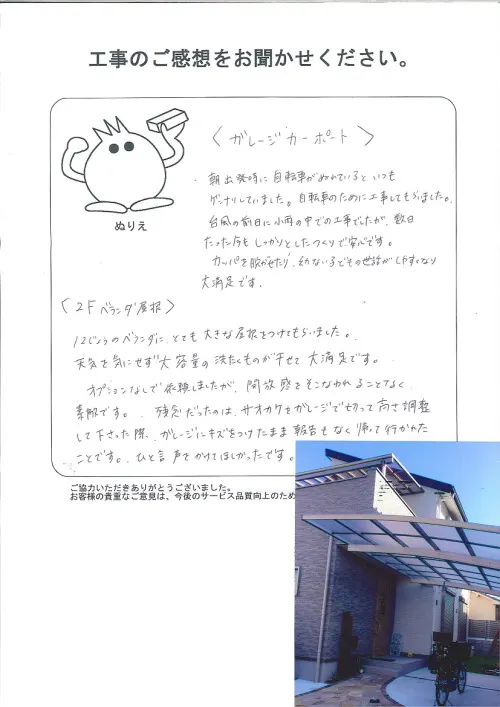 工事のご感想をお聞かせください。
ぬりえ
〈ガレージカーポート〉
朝出発時に自転車がぬれていると いつも
ゲンナリしていました。自転車のために工事してもらいました。
台風の前日に小雨の中での工事でしたが、数日
たった今も しっかりとしたつくりで安心です。
カッパを脱がせたり、幼ない子どもの世話がしやすくなり
大満足です。
〈2Fベランダ屋根〉
12じょうのベランダに、とても大きな屋根をつけてもらいました。
天気を気にせず大容量の洗たくものが干せて大満足です。
オプションなしで依頼しましたが、開放感をそこなわれることなく
素敵です。残念だったのは、サオカケをガレージで切って高さ調整
して下さった際、ガレージにキズをつけたまま報告もなく帰って行かれた
ことです。ひと言声をかけてほしかったです。
ご協力いただきありがとうございました。
お客様の貴重なご意見は、今後のサービス品質向上のため